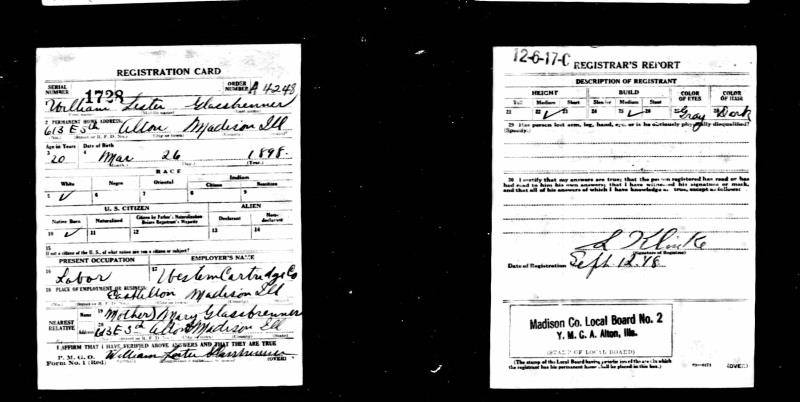 REGISTRATION CARD
SERIAL NUMBER 1728 ORDER NUMBER A4248
William Lester Glassbrenner
2 PERMANENT HOME ADDRESS:
613 E 5th Alton Madison Ill
Age in Years Date of Birth
3 4
20 Mar 26 1898.
(Year.)
RACE
White Negro Oriental Indian
Citizen Noncitizen
5 ✓ 6 7 8 9
U. S. CITIZEN ALIEN
Native Born Naturalized Citizen by Father's Naturalization Before Registrant's Majority Declarant Non-declarant
10 ✓ 11 12 13 14
15
If not a citizen of the U. S., of what nation are you a citizen or subject?
PRESENT OCCUPATION EMPLOYER'S NAME
16 Labor 17 Western Cartridge Co
18 PLACE OF EMPLOYMENT OR BUSINESS:
East Alton Madison Ill
NEAREST RELATIVE Name 19 (Mother) Mary Glassbrenner
Address 20 613 E 5th Alton Madison Ill
I AFFIRM THAT I HAVE VERIFIED ABOVE ANSWERS AND THAT THEY ARE TRUE
P. M. G. O.
Form No. 1 (Red) William Lester Glassbrenner (OVER)
12-6-17-C REGISTRAR'S REPORT
DESCRIPTION OF REGISTRANT
HEIGHT BUILD COLOR OF EYES COLOR OF HAIR
Tall Medium Short Slender Medium Stout
21 22 ✓ 23 24 25 ✓ 26 27 Gray 28 Dark
29 Has person lost arm, leg, hand, eye, or is he obviously physically disqualified?
(Specify.)
30 I certify that my answers are true; that the person registered has read or has
had read to him his own answers; that I have witnessed his signature or mark,
and that all of his answers of which I have knowledge are true, except as follows:
(Signature of Registrar)
Date of Registration Sept 12. 18
Madison Co. Local Board No. 2
Y. M. C. A. Alton, Ills.
(STAMP OF LOCAL BOARD)
(The stamp of the Local Board having jurisdiction of the area in which
the registrant has his permanent home shall be placed in this box.)
(OVER)